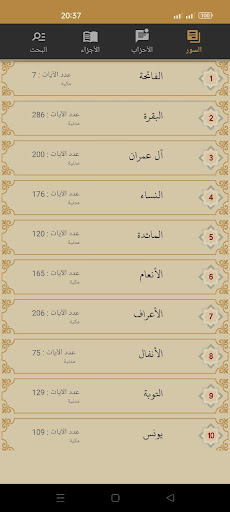 20:37
السور
الأحزاب
الأجزاء
البحث
1
الفاتحة
عدد الآيات : 7
مكية
2
البقرة
عدد الآيات : 286
مدنية
3
آل عمران
عدد الآيات : 200
مدنية
4
النساء
عدد الآيات : 176
مدنية
5
المائدة
عدد الآيات : 120
مدنية
6
الأنعام
عدد الآيات : 165
مكية
7
الأعراف
عدد الآيات : 206
مكية
8
الأنفال
عدد الآيات : 75
مدنية
9
التوبة
عدد الآيات : 129
مدنية
10
يونس
عدد الآيات : 109
مكية